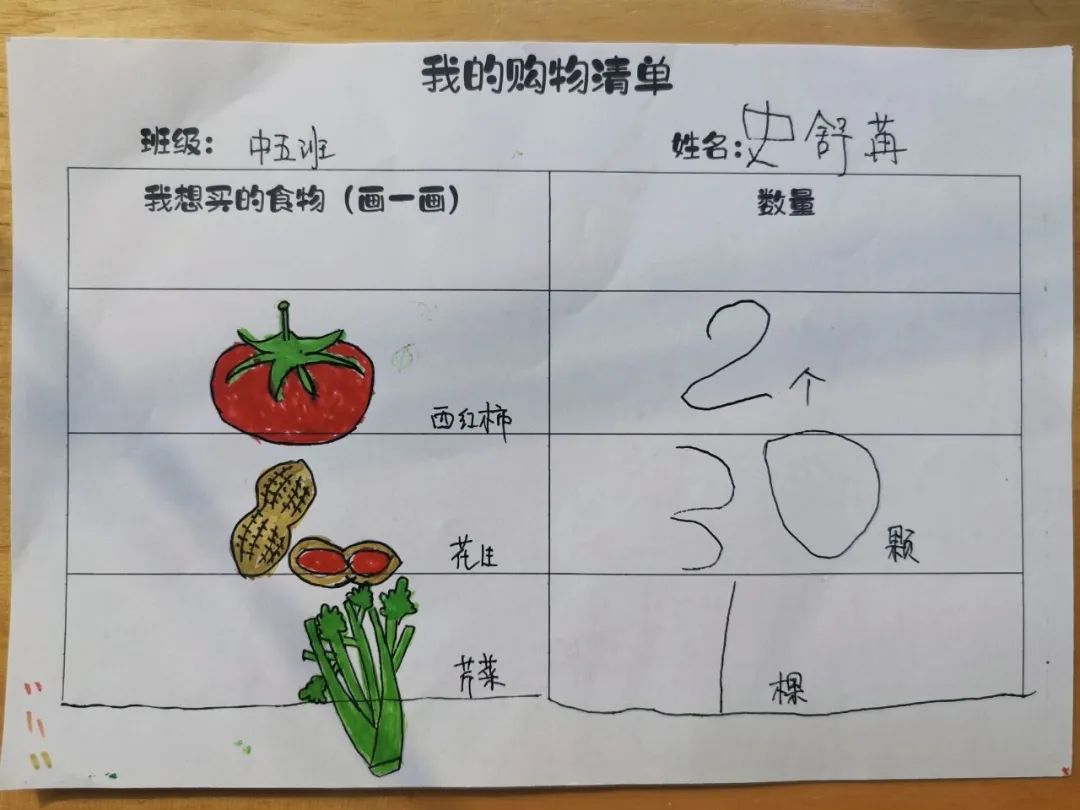 我的购物清单
班级： 中五班 姓名：史舒苒
我想买的食物（画一画） 数量
西红柿 2个
花生 30颗
芹菜 1棵